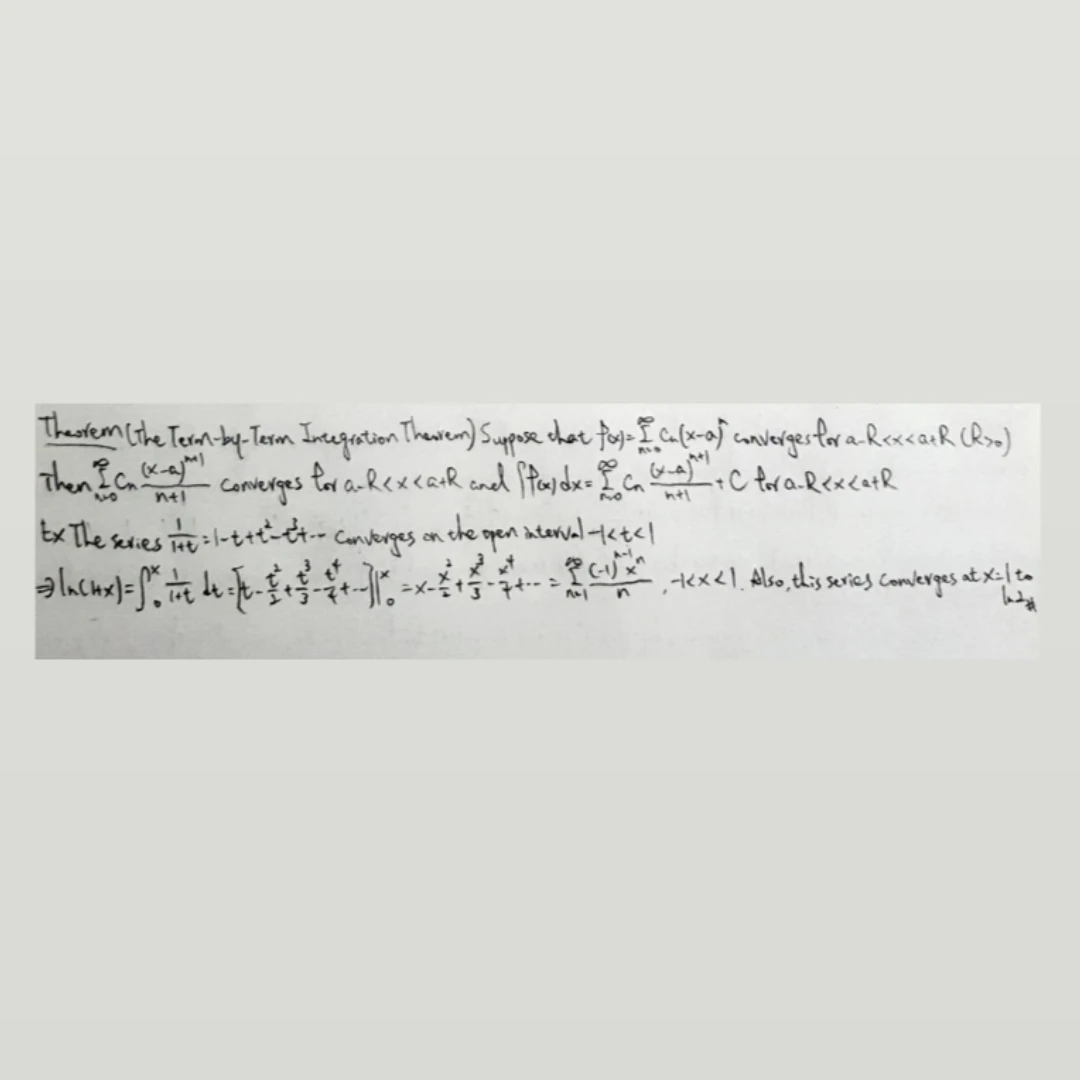 Theorem (The Term-by-Term Integration Theorem) Suppose that f(x)=∑_{n=0}^{∞} Cₙ(x-a)ⁿ converges for a-R<x<a+R (R>0)
Then ∑_{n=0}^{∞} Cₙ (x-a)^{n+1}/(n+1) converges for a-R<x<a+R and ∫f(x)dx=∑_{n=0}^{∞} Cₙ (x-a)^{n+1}/(n+1) + C for a-R<x<a+R
Ex The series 1/(1+t) = 1-t+t²-t³+... converges on the open interval -1<t<1
⇒ ln(1+x)=∫₀ˣ 1/(1+t) dt = [t - t²/2 + t³/3 - t⁴/4 + ...]|₀ˣ = x - x²/2 + x³/3 - x⁴/4 + ... = ∑_{n=1}^{∞} (-1)^{n-1} xⁿ/n , -1<x<1. Also, this series converges at x=1 to
ln2 #